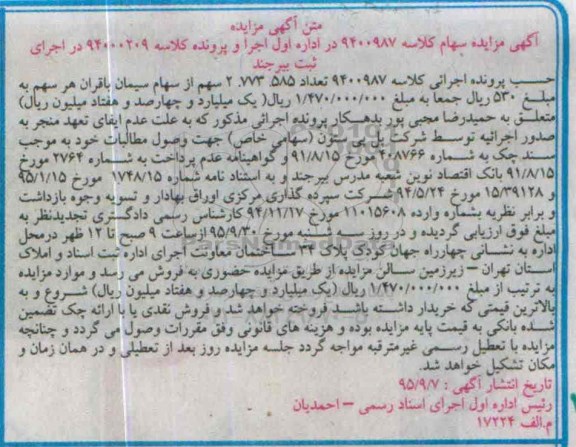 متن آگهی مزایده
آگهی مزایده سهام کلاسه ۹۴۰۰۹۸۷ در اداره اول اجرا و پرونده کلاسه ۹۴۰۰۰۲۰۹ در اجرای
ثبت بیرجند
حسب پرونده اجرائی کلاسه ۹۴۰۰۹۸۷ تعداد ۲.۷۷۳.۵۸۵ سهم از سهام سیمان باقران هر سهم به
مبلغ ۵۳۰ ریال جمعا به مبلغ ۱/۴۷۰/۰۰۰/۰۰۰ ریال( یک میلیارد و چهارصد و هفتاد میلیون ریال)
متعلق به حمیدرضا محبی پور بدهکار پرونده اجرائی مذکور که به علت عدم ایفای تعهد منجر به
صدور اجرائیه توسط شرکت بی ستون (سهامی خاص) جهت وصول مطالبات خود به موجب
سند چک به شماره ۴۰۸۷۶۶ مورخ ۹۱/۸/۱۵ و گواهینامه عدم پرداخت به شماره ۲۷۶۴ مورخ
۹۱/۸/۱۵ بانک اقتصاد نوین شعبه مدرس بیرجند و به استناد نامه شماره ۱۷۴۸/۱۵ مورخ ۹۵/۱/۱۵
و ۱۵/۳۹۱۲۸ مورخ ۹۴/۵/۲۴ شرکت سپرده گذاری مرکزی اوراق بهادار و تسویه وجوه بازداشت
و برابر نظریه بشماره وارده ۱۱۰۱۵۶۰۸ مورخ ۹۴/۱۲/۱۷ کارشناس رسمی دادگستری تجدیدنظر به
مبلغ فوق ارزیابی گردیده و در روز سه شنبه مورخ ۹۵/۹/۳۰ از ساعت ۹ صبح تا ۱۲ ظهر درمحل
اداره به نشانی چهارراه جهان کودک پلاک ۳۴ ساختمان معاونت اجرای اداره ثبت اسناد و املاک
استان تهران – زیرزمین سالن مزایده از طریق مزایده حضوری به فروش می رسد و موارد مزایده
به ترتیب از مبلغ ۱/۴۷۰/۰۰۰/۰۰۰ ریال (یک میلیارد و چهارصد و هفتاد میلیون ریال) شروع و به
بالاترین قیمتی که خریدار داشته باشد فروخته خواهد شد و فروش نقدی یا با ارائه چک تضمین
شده بانکی به قیمت پایه مزایده بوده و هزینه های قانونی وفق مقررات وصول می گردد و چنانچه
مزایده با تعطیل رسمی غیرمترقبه مواجه گردد جلسه مزایده روز بعد از تعطیلی و در همان زمان و
مکان تشکیل خواهد شد.
تاریخ انتشار آگهی : ۹۵/۹/۷
رئیس اداره اول اجرای اسناد رسمی – احمدیان
م.الف ۱۷۲۲۴